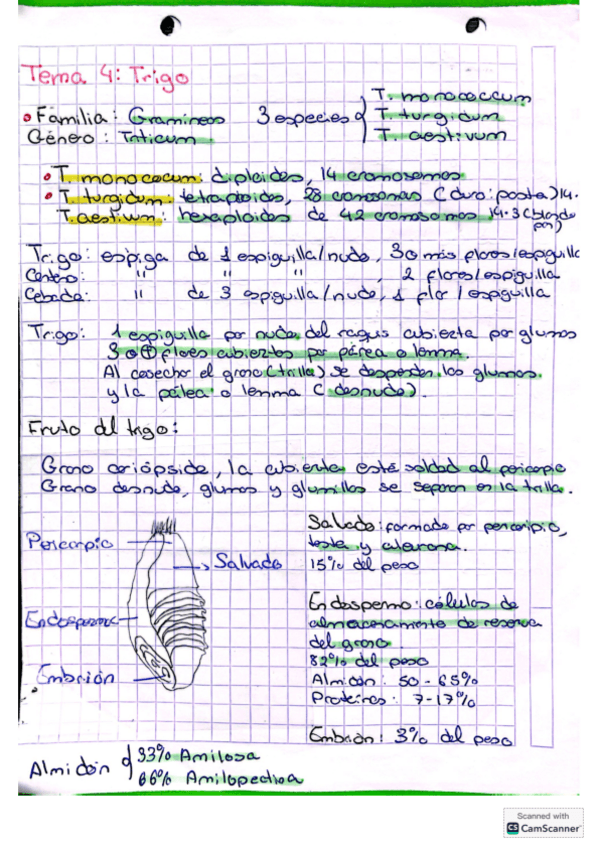 Tema 4: Trigo
• Familia: Gramineas 3 especies { T. monococcum
Género: Triticum T. turgidum
T. aestivum
• T. monococum: diploides, 14 cromosomas
• T. turgidum: tetraploides, 28 cromosomas (duro: pasta) 14.
T. aestium: hexaploides de 42 cromosomas 14.3 (blando pan)
Trigo: espiga de 1 espiguilla/nudo, 3 o más flores/espiguilla
Centeno: " " " , 2 flores/espiguilla
Cebada: " de 3 espiguilla/nudo, 1 flor/espiguilla
Trigo: 1 espiguilla por nudo del raquis cubierta por glumas
3 o ⊕ flores cubiertas por pálea o lemma.
Al cosechar el grano (trilla) se desprenden las glumas
y la pálea o lemma (desnudo).
Fruto del trigo:
Grano cariópside, la cubierta está soldad al pericapio
Grano desnudo, glumas y glumillas se separan en la trilla.
Pericarpio
Salvado
Endosperma
Embrión
Salvado: formado por pericripio,
testa y aleurona.
15% del peso
Endospermo: células de
almacenamiento de reserva
del grano.
82% del peso
Almidón: 50-65%
Proteínas: 7-17%
Embrión: 3% del peso
Almidón { 33% Amilosa
66% Amilopectina
Scanned with
CS CamScanner